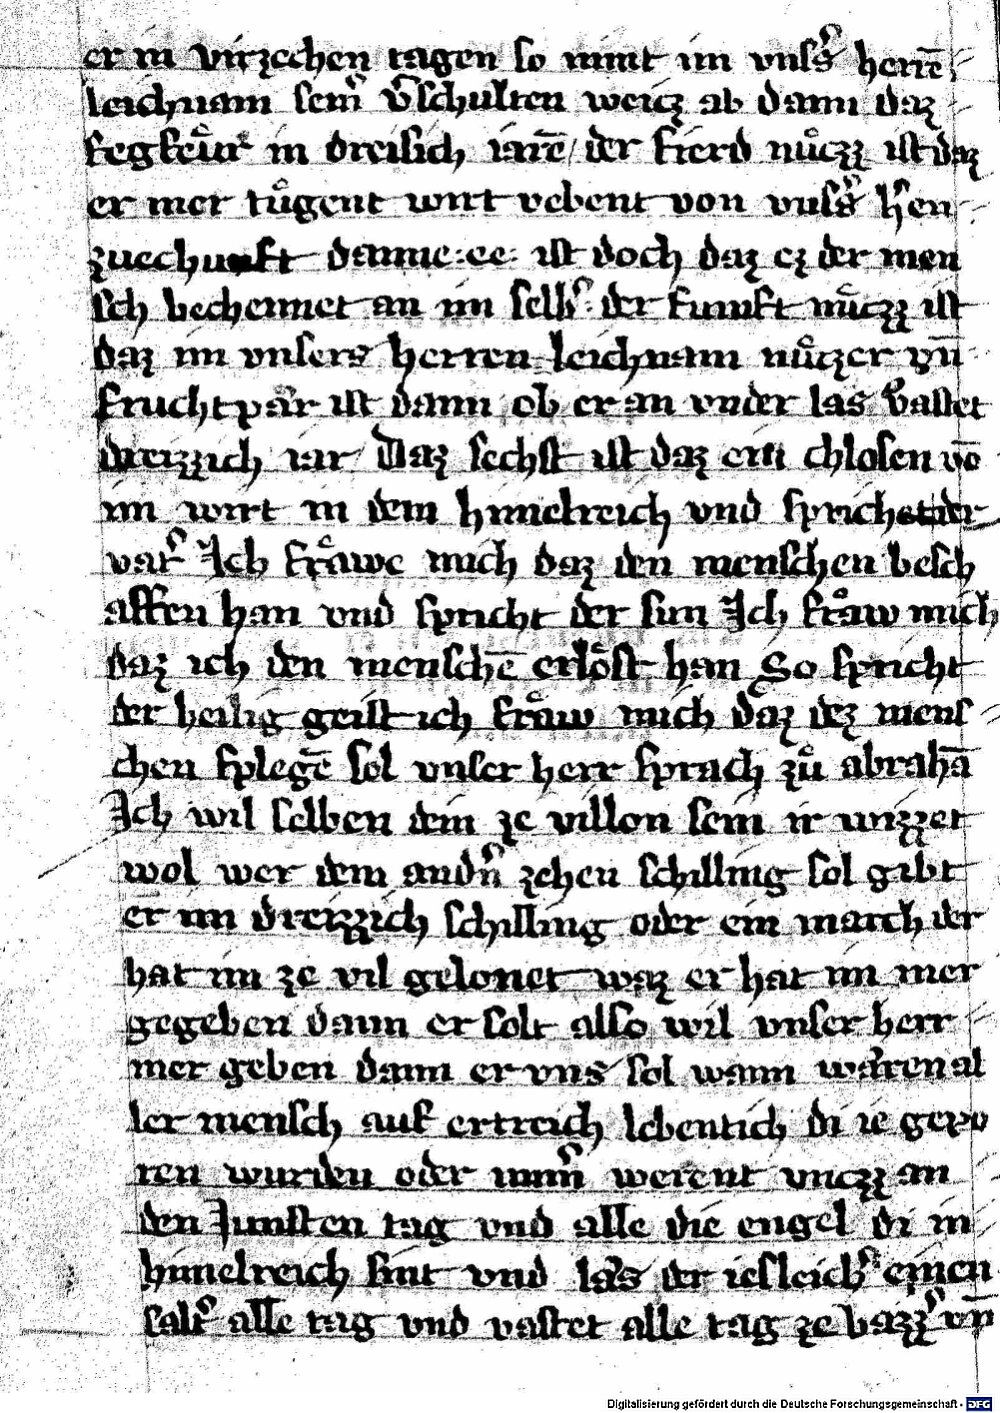 er in virzechen tagen so nimt im vnsẜ herrē
leichnam seinẜ v̾schulten weicz ab dann daz
fegfeͤur in dreisich iarē / der fierd nuͤczz ist daz
er mer tuͤgent wirt vebent von vnsẜ h̾en
zuechunft danne : ee : ist doch daz ez der men
sch bechennet an im selb̾ : der funft nuͤczz ist
daz im vnsers herren leichnam nuͤczer vn̄
fruchtpaͤr ist dann ob er an vnder las vastet
dreizzich iar / Daz sechst ist daz ein chlosen vō
im wirt in dem himelreich vnd sprichet der
vat̾ Ich fraͤwe mich daz den menschen besch
affen han vnd spricht der sun Ich fraͤw mich
daz ich den menschē erloͤst han So spricht
der heilig geist ich fraͤw mich daz dez mens
chen fplegē sol vnser herr sprach zuͤ abrahā
Ich wil selben dein ze villon sein ir wizzet
wol wer dem andn̾ zehen schilling sol gibt
er im dreizzich schilling oder ein march der
hat im ze vil gelonet waz er hat im mer
gegeben dann er solt also wil vnser herr
mer geben dann er vns sol wann waͤren al
ler mensch auf ertreich lebentich di ie gepo
ren wurden oder nim̾ werent vnczz an
den Junsten tag vnd alle die engel di in
himelreich sint vnd las der iesleich̾ einen
salt̾ alle tag vnd vastet alle tag ze bazz̾ vn̄
Digitalisierung gefördert durch die Deutsche Forschungsgemeinschaft - DFG